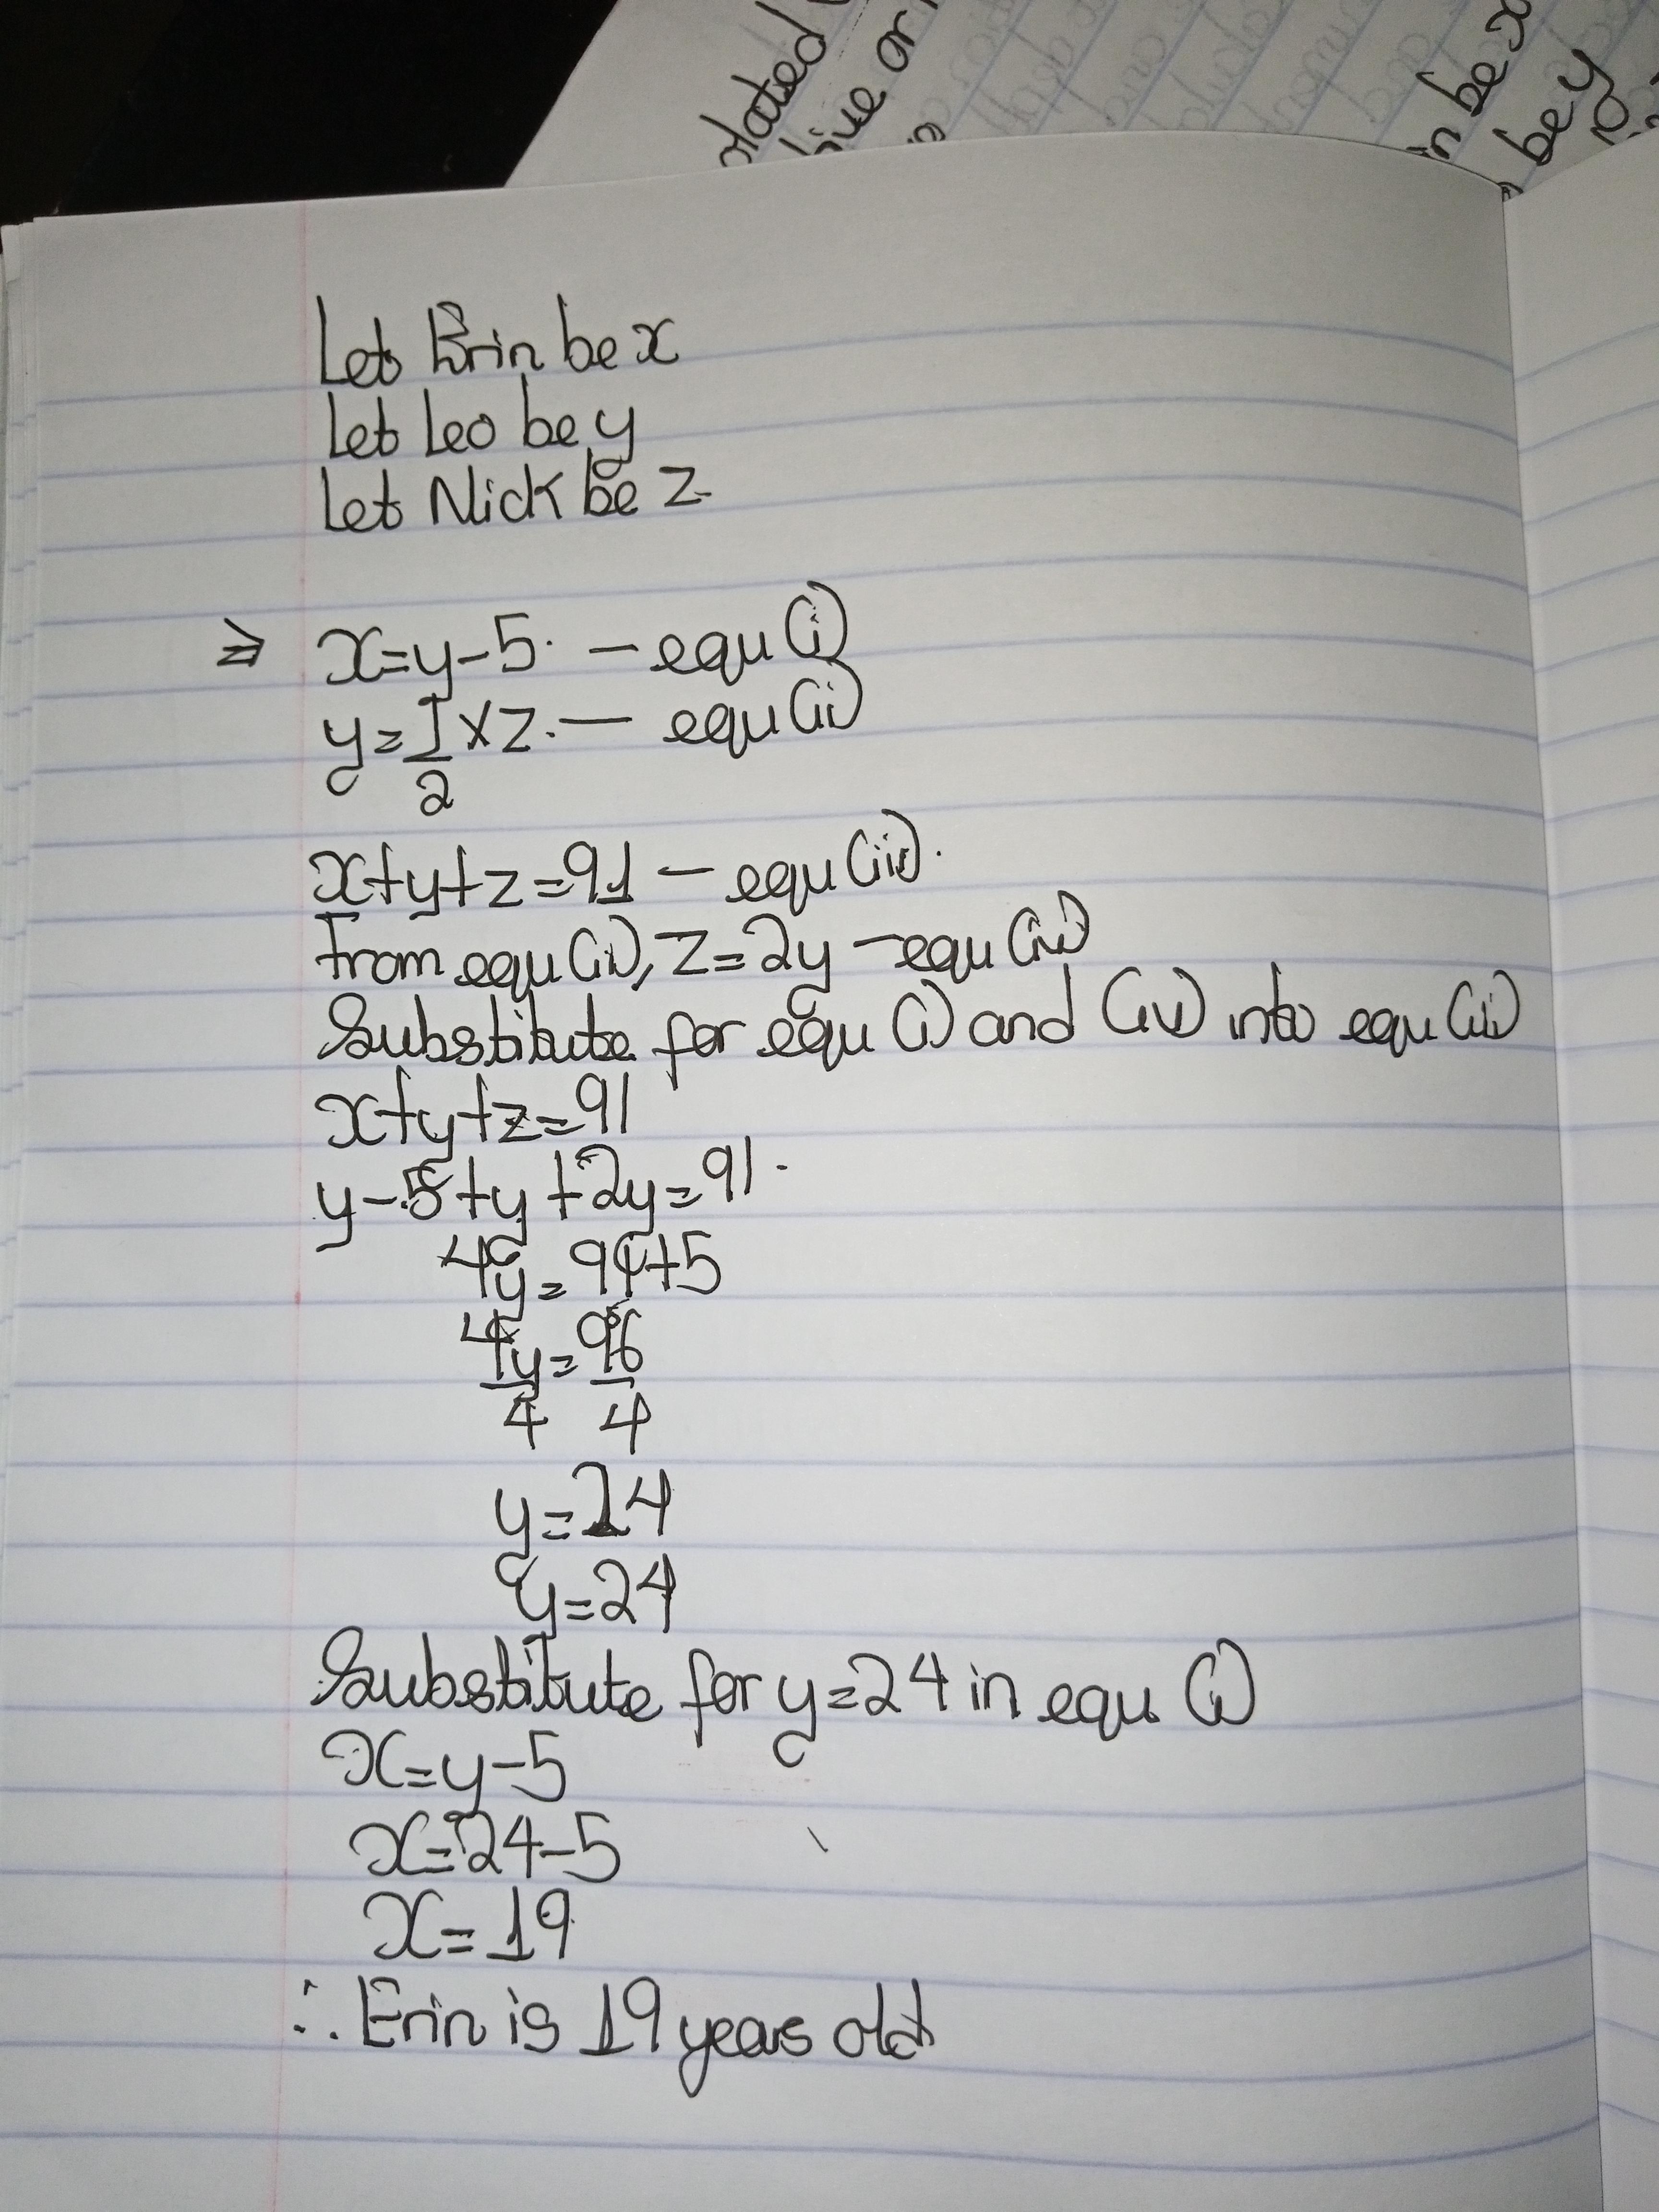 olated
hive or
in be x
be y
Let Erin be x
Let Leo be y
Let Nick be z
⇒ x=y-5. - equ (i)
y=1/2 x z. - equ (ii)
x+y+z=91 - equ (iii).
From equ (ii), z=2y - equ (iv)
Substitute for equ (i) and (iv) into equ (iii)
x+y+z=91
y-5+y+2y=91.
4y=91+5
4y/4=96/4
y=24
y=24
Substitute for y=24 in equ (i)
x=y-5
x=24-5
x=19
∴ Erin is 19 years old